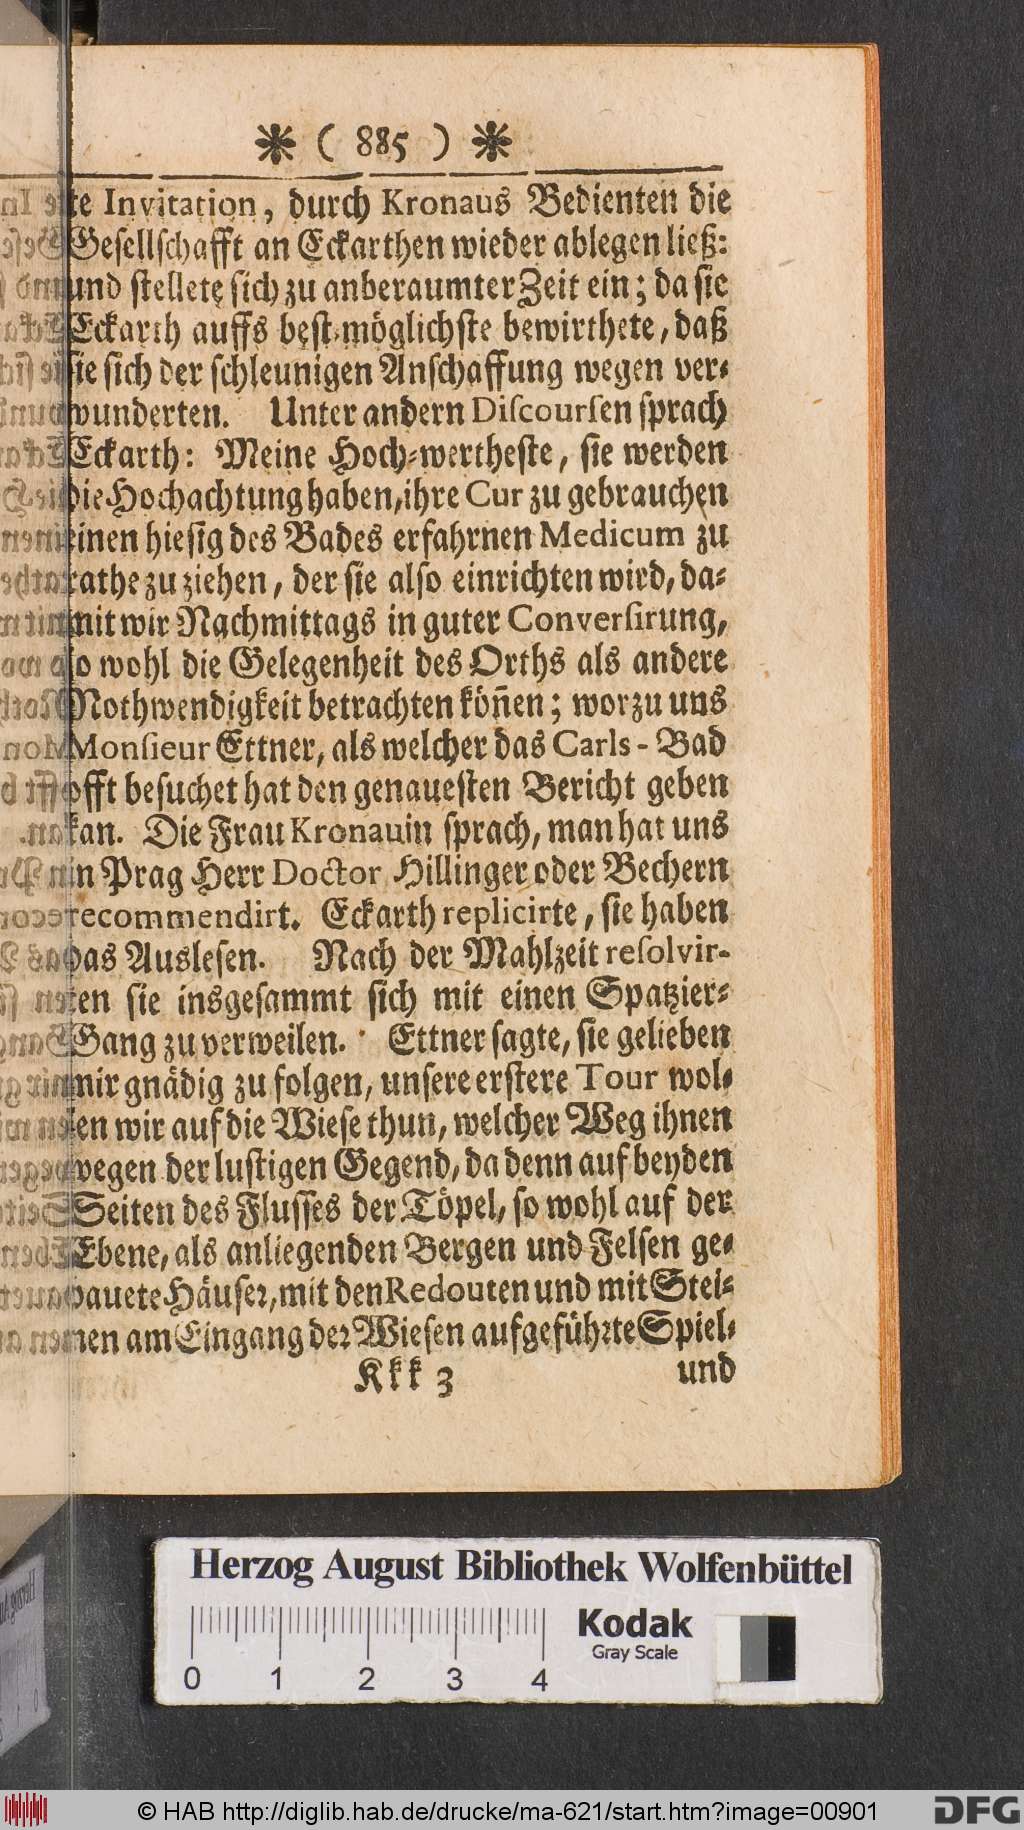 * ( 885 ) *
te Invitation, durch Kronaus Bedienten die
Gesellschafft an Eckarthen wieder ablegen ließ:
und stellete sich zu anberaumter Zeit ein; da sie
Eckarth auffs best-möglichste bewirthete, daß
sie sich der schleunigen Anschaffung wegen ver-
wunderten. Unter andern Discoursen sprach
Eckarth: Meine Hoch-wertheste, sie werden
die Hochachtung haben, ihre Cur zu gebrauchen
einen hiesig des Bades erfahrnen Medicum zu
rathe zu ziehen, der sie also einrichten wird, da-
mit wir Nachmittags in guter Conversirung,
so wohl die Gelegenheit des Orths als andere
Nothwendigkeit betrachten köñen; worzu uns
Monsieur Ettner, als welcher das Carls-Bad
offt besuchet hat den genauesten Bericht geben
kan. Die Frau Kronauin sprach, man hat uns
in Prag Herr Doctor Hillinger oder Bechern
recommendirt. Eckarth replicirte, sie haben
das Auslesen. Nach der Mahlzeit resolvir-
ten sie insgesammt sich mit einen Spatzier-
Gang zu verweilen. Ettner sagte, sie gelieben
mir gnädig zu folgen, unsere erstere Tour wol-
len wir auf die Wiese thun, welcher Weg ihnen
wegen der lustigen Gegend, da denn auf beyden
Seiten des Flusses der Töpel, so wohl auf der
Ebene, als anliegenden Bergen und Felsen ge-
bauete Häuser, mit den Redouten und mit Stei-
nen am Eingang der Wiesen aufgeführte Spiel-
Kkk 3 und
Herzog August Bibliothek Wolfenbüttel
Kodak
Gray Scale
0 1 2 3 4
© HAB http://diglib.hab.de/drucke/ma-621/start.htm?image=00901
DFG